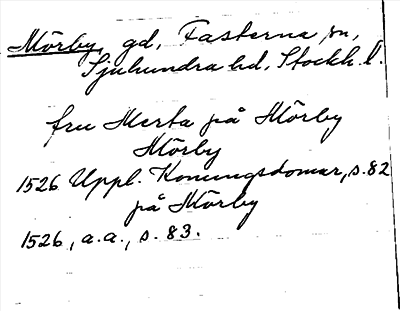 Mörby, gd, Fasterna sn,
Sjuhundra hd, Stockh. l.
fru Merta på Mörby
Mörby
1526 Uppl. Konungsdomar, s. 82
på Mörby
1526, a.a., s. 83.